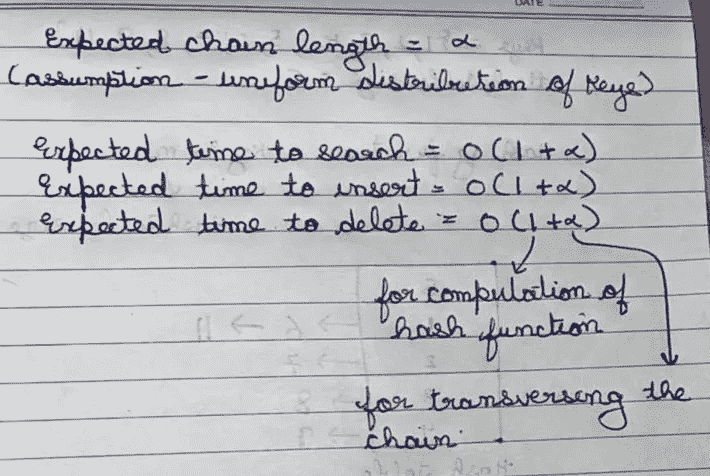 DATE
Expected chain length = α
(assumption - uniform distribution of Keys)
Expected time to search = O(1 + α)
Expected time to insert = O(1 + α)
Expected time to delete = O(1 + α)
for computation of
hash function
for transversing the
chain.